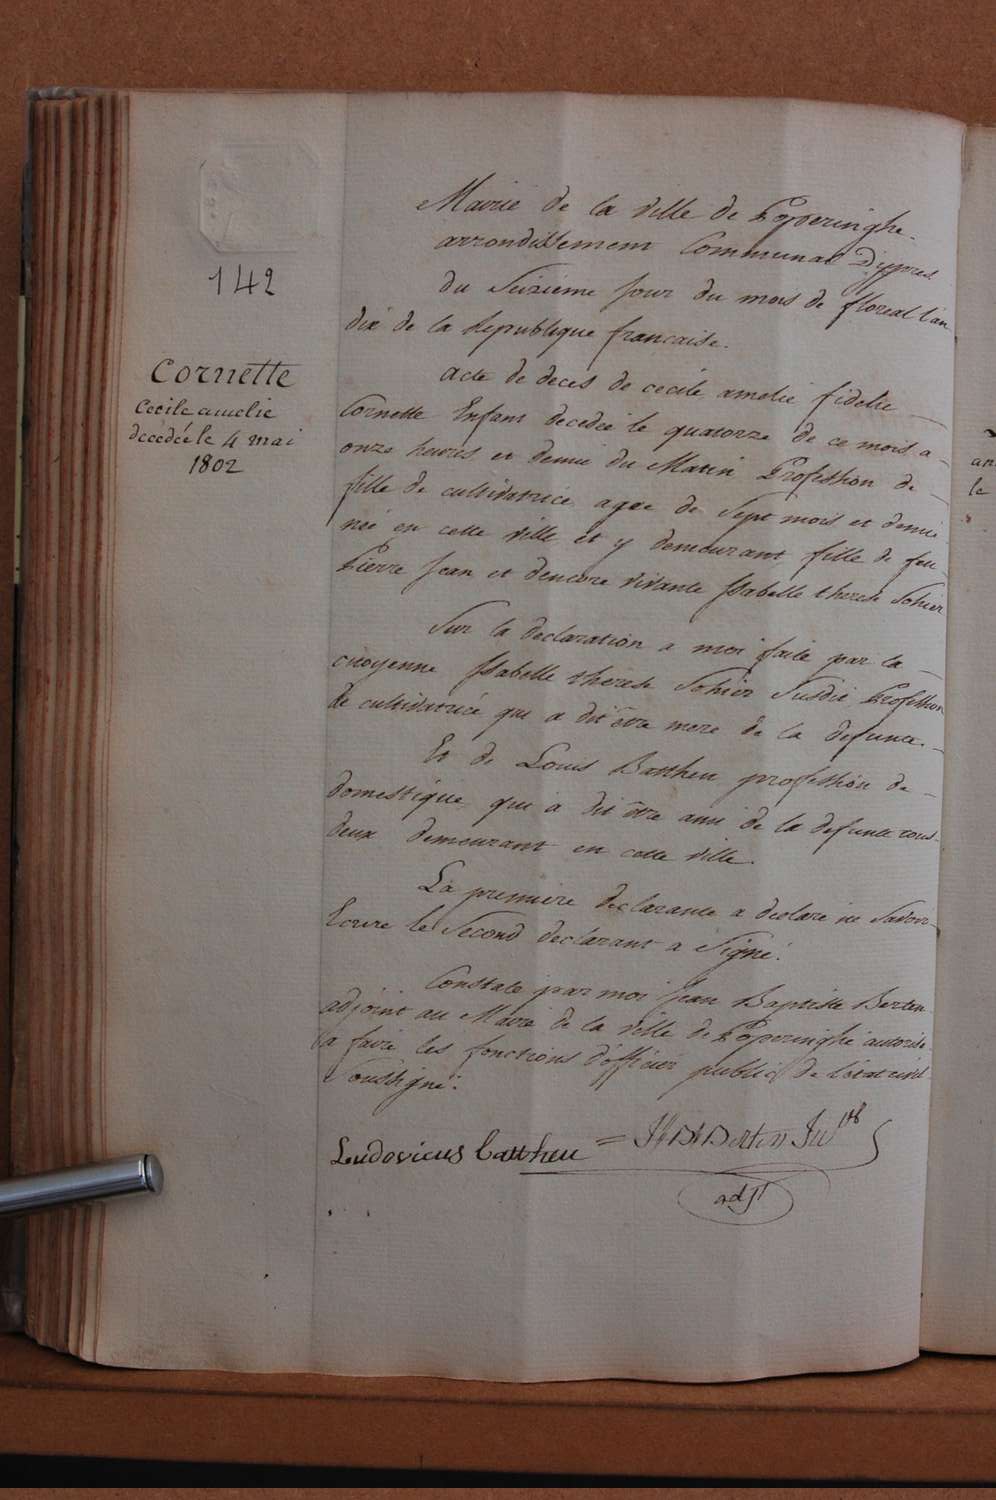 142
Cornette
Cecile amelie
decedée le 4 mai
1802
Mairie de la ville de Poperinghe
arrondissement Communal D'ypres
du Seizieme jour du mois de floreal l'an
dix de la Republique francaise.
acte de deces de cecile amelie fidelie
Cornette Enfant decedée le quatorze de ce mois a
onze heures et demie du Matin Profession de
fille de cultivatrice agée de Sept mois et demie
née en cette ville et y demeurant, fille de feu
Pierre Jean et d'encore vivante Isabelle therese Sohier
Sur la declaration a moi faite par la
citoyenne Isabelle therese Sohier Susdit Profession
de cultivatrice qui a dit être mere de la defunte.
Et de Louis Battheu profession de
domestique qui a dit être ami de la defunte tous
deux demeurant en cette ville.
La premiere declarante a declaré ne Savoir
Ecrire le Second declarant a Signé.
Constaté par moi Jean Baptiste Berten
adjoint au Maire de la ville de Poperinghe autorisé
a faire les fonctions d'officier public de l'état civil
Soussigné.
Ludovicus battheu = Berten
adjt
an
le